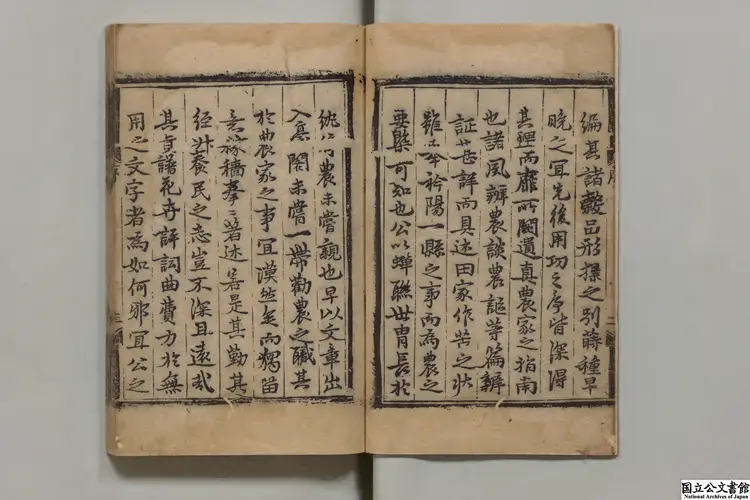 編其諸穀品形操之別蒔種早
晚之宜先後用功之序皆深得
其理而靡所闕遺真農家之指南
也諸風辨農談農謳等篇辨
証甚詳而具述田家作苦之狀
雖 衿陽一縣之事而為農之
要槩可知也公以蟬聯世冑長於
紈綺農未嘗親也早以文章出
入臺閣未嘗一帶勸農之職其
於農家之事宜漠然矣而獨留
意稼穡拳〻著述若是其勤其
經丗養民之志豈不深且遠哉
其与譜花卉評詞曲費力於無
用之文字者為如何邪宜公之
国立公文書館
National Archives of Japan